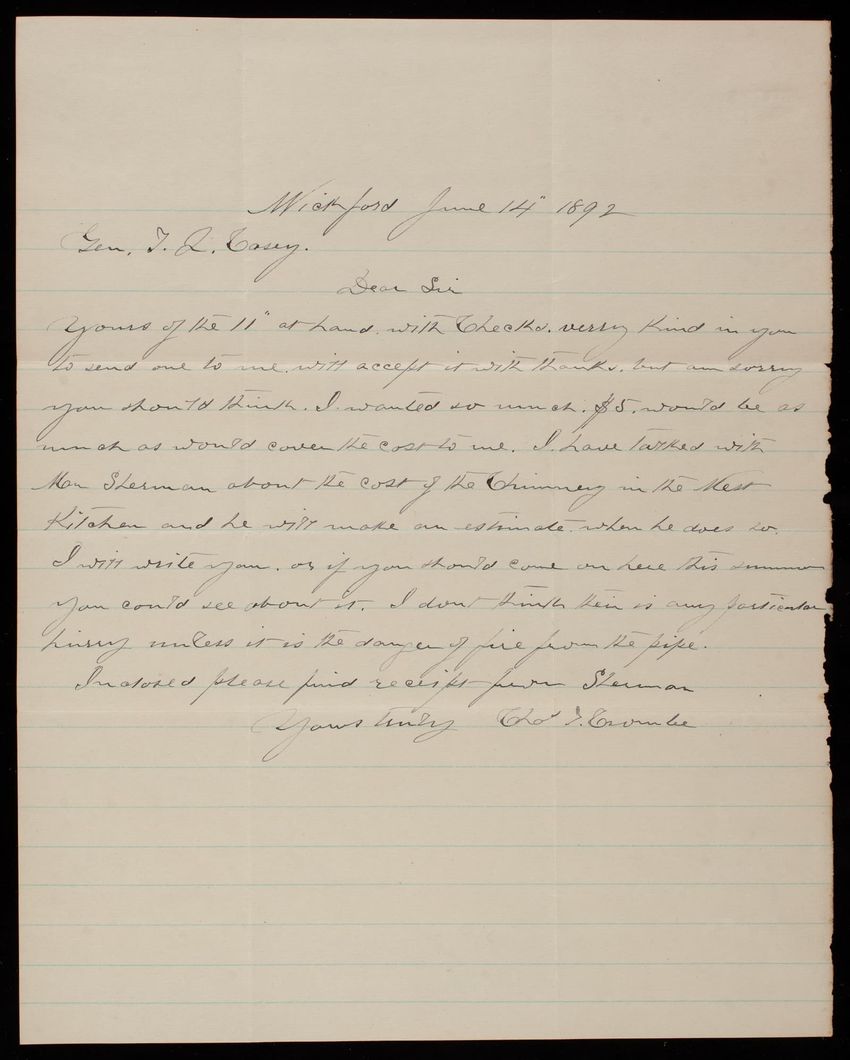 Wickford June 14" 1892
Gen. T. L. Casey.
Dear Sir
Yours of the 11" at hand. with Checks. verry Kind in you
to send one to me. will accept it with thanks. but am sorry
you should think. I wanted so much. $5. would be as
much as would cover the cost to me. I have talked with
Sherman about the cost of the Chimney in the West
Kitchen and he will make an estimate. when he does so.
I will write you. or if you should come on here this summer
you could see about it. I dont think their is any particular
hurry unless it is the danger of fire from the pipe.
Inclosed please find receipt from Sherman
Yours truly Thos T.